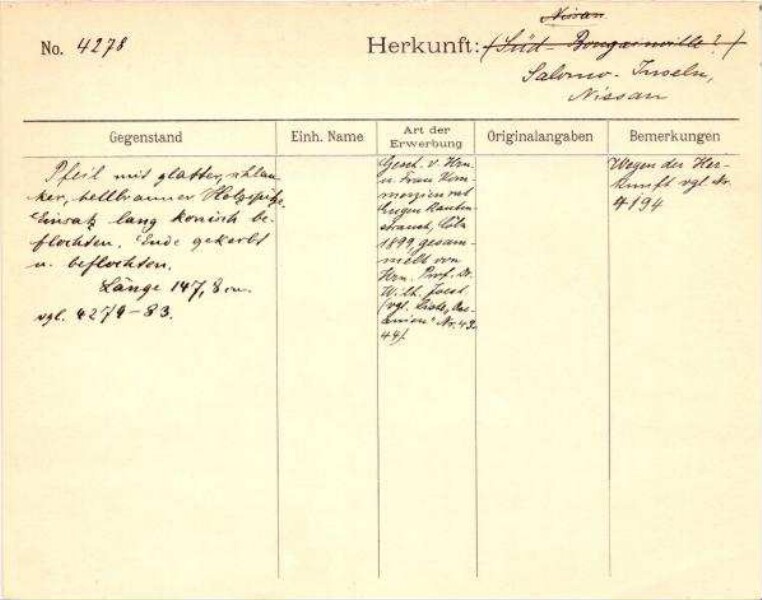 Nissan
No. 4278 Herkunft: (Süd-Bougainville?)
Salomo-Inseln,
Nissan
Gegenstand Einh. Name Art der Erwerbung Originalangaben Bemerkungen
Pfeil mit glatter, schlan-
ker, hellbrauner Holzspitze.
Einsatz lang konisch be-
flochten. Ende gekerbt
u. beflochten.
Länge 147,8 cm.
vgl. 4279-83.
Gesch. v. Hrn.
u. Frau Kom-
merzienrat
Eugen Rauten-
strauch, Cöln
1899, gesam-
melt von
Hrn. Prof. Dr.
Wilh. Joest
(vgl. Liste, Oce-
anien" Nr. 43.
44).
Wegen der Her-
kunft vgl. Nr.
4194